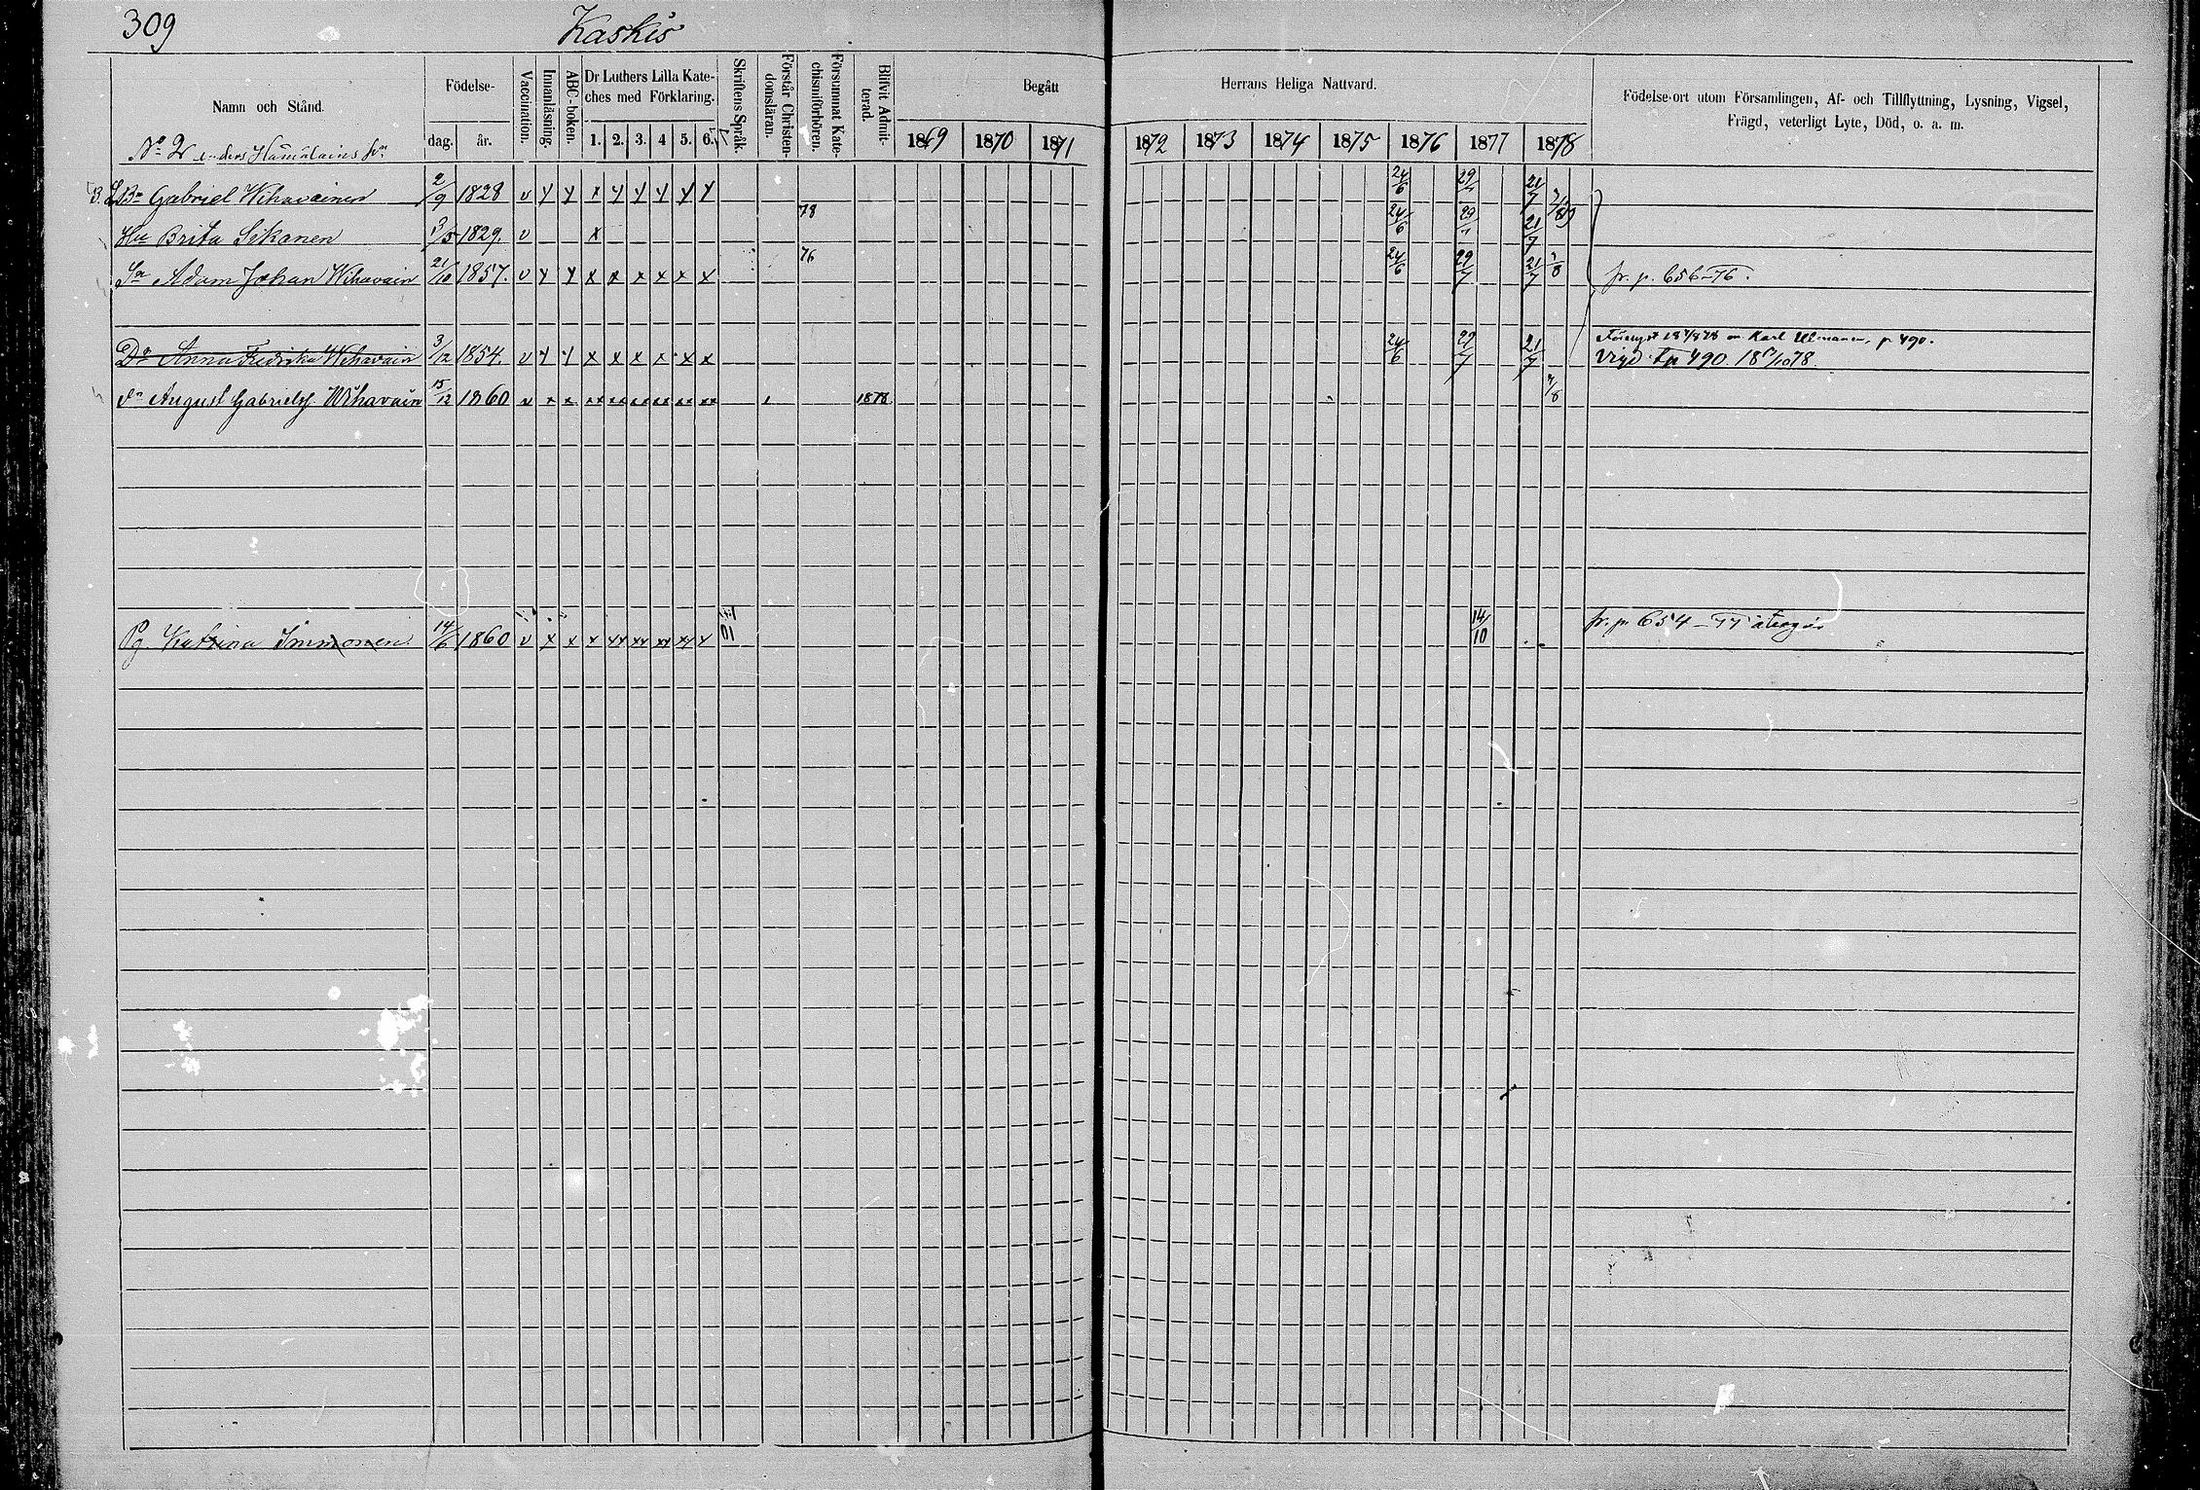 309 Kaskis
Namn och Stånd. Födelse- dag. år. Vaccination. Innanläsning. ABC-boken. Dr Luthers Lilla Kateches med Förklaring. 1. 2. 3. 4 5. 6. Skriftens Språk. Förstår Christendomsläran. Försummat Katechismiförhören. Blifvit Admitterad. Begått Herrans Heliga Nattvard. 1869 1870 1871 1872 1873 1874 1875 1876 1877 1878 Födelse-ort utom Församlingen, Af- och Tillflyttning, Lysning, Vigsel,
Frägd, veterligt Lyte, Död, o. a. m.
No 2
Bn Gabriel Wihavainen 2/9 1828 v y y x y y y y y 24/6 29/7 21/7
Hu Brita Sikanen 3/5 1829. v x 78 24/6 29/7 21/7
Sn Adam Johan Wihavain 21/10 1857. v y y x x x x x x 76 24/6 29/7 21/7 fr. p. 656-76.
Dr Anna Fredrika Wihavain 3/12 1854. v y y x x x x x x 24/6 29/7 21/7 Karl Ulmanen, p 490.
Vigd 490. 78.
Sn August Gabrielsf. Wihavain 15/12 1860 x x xx xx xx xx xx xx 1878 4/8
Pg. Katrina Immonen 14/6 1860 v x x x xx xx xx xy y 14/10 fr. p. 654-77 återgår